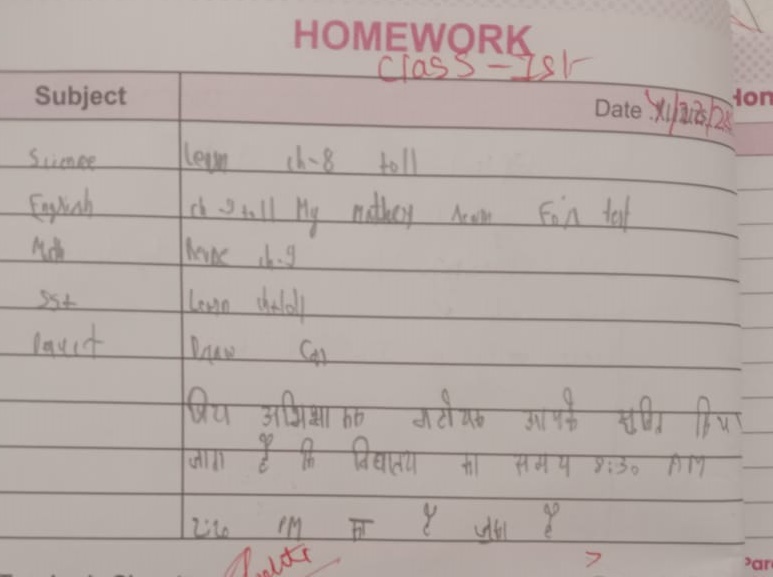 HOMEWORK
Class - Ist
Subject Date
Science Learn ch-8 toll
English ch 9 toll My mothey learn For test
Math Revise ch-9
Sst Learn
Draw Car
प्रिय अभिभावक महोदय आपको सूचित किय
जाता है कि विद्यालय का समय 8:30 AM
2:20 PM का है
Hon
Par